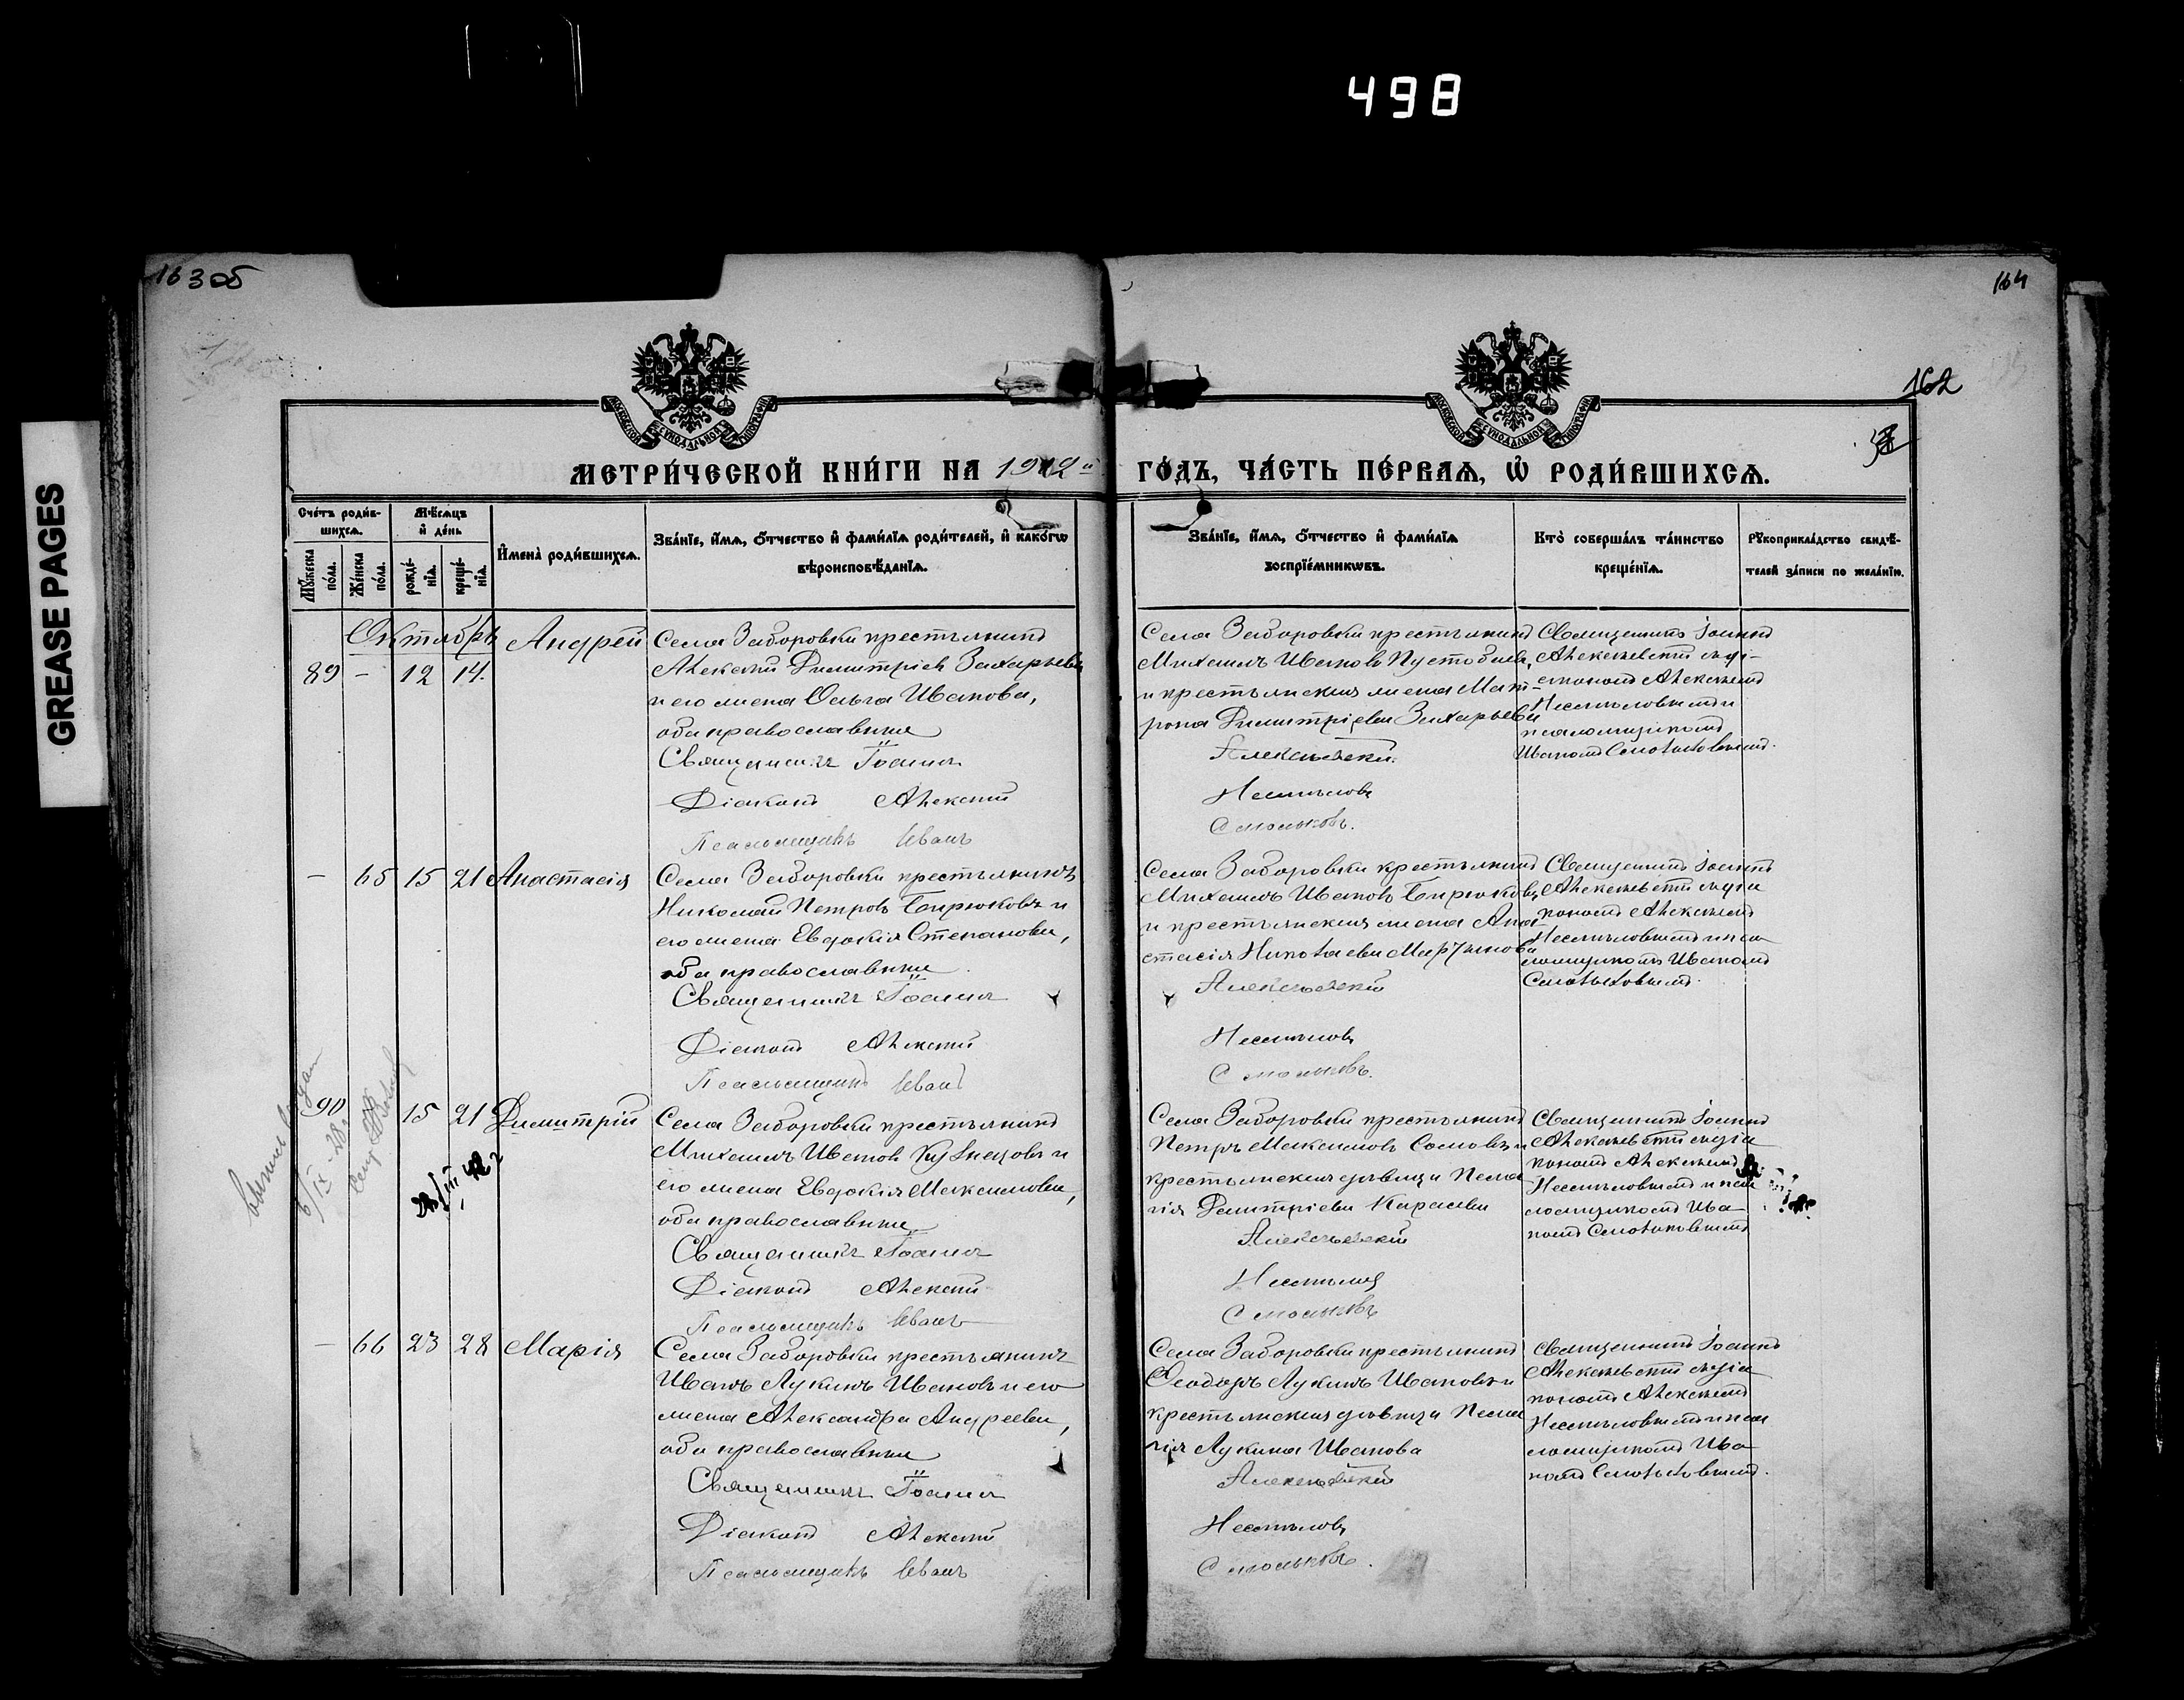 498
GREASE PAGES
163 об
164
162
МОСКОВСКОЙ СѴНОДАЛЬНОЙ ТИПОГРАФІИ
МОСКОВСКОЙ СѴНОДАЛЬНОЙ ТИПОГРАФІИ
МЕТРИ́ЧЕСКОЙ КНИ́ГИ НА 1912й ГО́ДЪ, ЧА́СТЬ ПЕ́РВАѦ, Ѡ҆ РОДИ́ВШИХСѦ.
Сче́тъ роди́вшихсѧ.
Мꙋ́жеска по́ла.
Же́нска по́ла.
Мѣ́сѧцъ и҆ де́нь
рожде́нїѧ.
креще́нїѧ.
И҆мена̀ роди́вшихсѧ.
Зва́нїе, и҆́мѧ, ѻ҆́тчество и҆ фами́лїѧ роди́телей, и҆ како́гѡ
вѣроисповѣ́данїѧ.
Зва́нїе, и҆́мѧ, ѻ҆́тчество и҆ фами́лїѧ
воспрїе́мникѡвъ.
Кто̀ соверша́лъ та́инство
креще́нїѧ.
Рꙋкоприкла́дство свидѣ́-
телей за́писи по жела́нїю.
Октябрь
89 - 12 14. Андрей
Села Заборовки крестьянинъ
Алексѣй Димитріевъ Захарьевъ
и его жена Ольга Иванова,
оба православные
Священникъ Іоаннъ
Діаконъ Алексѣй
Псаломщикъ Иванъ
Села Заборовки крестьянинъ
Михаилъ Ивановъ Пустобаевъ,
и крестьянская жена Мат-
рона Димитріева Захарьева
Алексѣевскій
Несмѣловъ
Смольковъ.
Священникъ Іоаннъ
Алексѣевскій съ ді-
акономъ Алексѣемъ
Несмѣловымъ и
псаломщикомъ
Иваномъ Смольковымъ.
- 65 15 21 Анастасія
Села Заборовки крестьянинъ
Николай Петровъ Бирюковъ и
его жена Евдокія Степанова,
оба православные
Священникъ Іоаннъ
Діаконъ Алексѣй
Псаломщикъ Иванъ
Села Заборовки крестьянинъ
Михаилъ Ивановъ Бирюковъ,
и крестьянская жена Ана-
стасія Николаева Мартынова
Алексѣевскій
Несмѣловъ
Смольковъ.
Священникъ Іоаннъ
Алексѣевскій съ діа
кономъ Алексѣемъ
Несмѣловымъ и пса
ломщикомъ Иваномъ
Смольковымъ.
90 15 21 Димитрій
Села Заборовки крестьянинъ
Михаилъ Ивановъ Кузнецовъ и
его жена Евдокія Максимова,
оба православные
Священникъ Іоаннъ
Діаконъ Алексѣй
Псаломщикъ Иванъ
Села Заборовки крестьянинъ
Петръ Максимовъ Сомовъ и
крестьянская дѣвица Пела
гія Димитріева Карасева
Алексѣевскій
Несмѣловъ
Смольковъ
Священникъ Іоаннъ
Алексѣевскій съ діа
кономъ Алексѣемъ
Несмѣловымъ и пса
ломщикомъ Ива-
номъ Смольковымъ
- 66 23 28 Марія
Села Заборовки крестьянинъ
Иванъ Лукинъ Ивановъ и его
жена Александра Андреева,
оба православные
Священникъ Іоаннъ
Діаконъ Алексѣй
Псаломщикъ Иванъ
Села Заборовки крестьянинъ
Ѳеодоръ Лукинъ Ивановъ и
крестьянская дѣвица Пела
гія Лукина Иванова
Алексѣевскій
Несмѣловъ
Смольковъ.
Священникъ Іоаннъ
Алексѣевскій съ діа
кономъ Алексѣемъ
Несмѣловымъ и пса
ломщикомъ Ива-
номъ Смольковымъ.